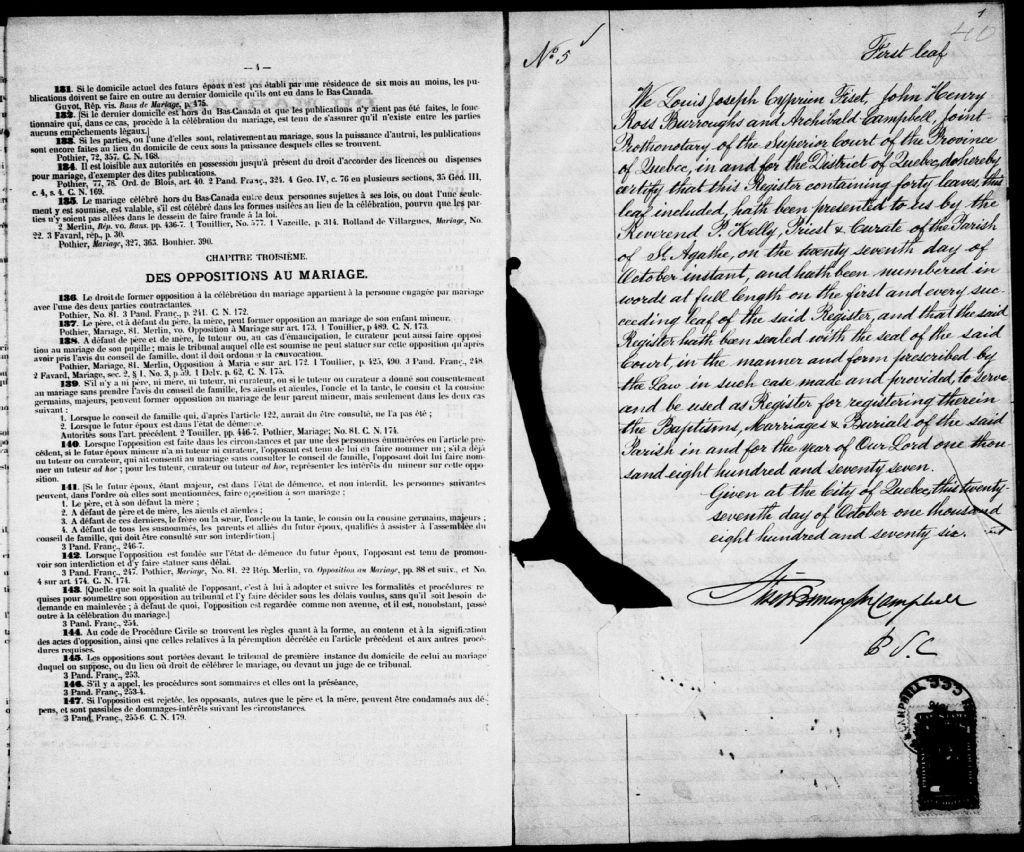 — 4 —
131. Si le domicile actuel des futurs époux n'est pas établi par une résidence de six mois au moins, les pu-
blications doivent se faire en outre au dernier domicile qu'ils ont eu dans le Bas Canada.
Guyot, Rép. vis. Bans de Mariage, p. 475.
132. [Si le dernier domicile est hors du Bas-Canada et que les publications n'y aient pas été faites, le fonc-
tionnaire qui, dans ce cas, procède à la célébration du mariage, est tenu de s'assurer qu'il n'existe entre les parties
aucuns empêchements légaux.]
133. Si les parties, ou l'une d'elles sont, relativement au mariage, sous la puissance d'autrui, les publications
sont encore faites au lieu du domicile de ceux sous la puissance desquels elles se trouvent.
Pothier, 72, 357. C. N. 168.
134. Il est loisible aux autorités en possession jusqu'à présent du droit d'accorder des licences ou dispenses
pour mariage, d'exempter des dites publications.
Pothier, 77, 78. Ord. de Blois, art. 40. 2 Pand. Franç., 324. 4 Geo. IV, c. 76 en plusieurs sections, 35 Géd. III,
c. 4, s. 4. C. N. 169.
135. Le mariage célébré hors du Bas-Canada entre deux personnes sujettes à ses lois, ou dont l'une seule-
ment y est soumise, est valable, s'il est célébré dans les formes usitées au lieu de la célébration, pourvu que les par-
ties n'y soient pas allées dans le dessein de faire fraude à la loi.
2 Merlin, Rép. vo. Bans. pp. 436-7. 1 Touillier, No. 577. 1 Vazeille, p. 314. Rolland de Villargues, Mariage, No.
22. 3 Favard, rép., p. 30.
Pothier, Mariage, 327, 363. Bouhier. 390.
CHAPITRE TROISIÈME.
DES OPPOSITIONS AU MARIAGE.
136. Le droit de former opposition à la célébrétion du mariage appartient à la personne engagée par mariage
avec l'une des deux parties contractantes.
Pothier, No. 81. 3 Pand. Franç., p. 241. C. N. 172.
137. Le père, et à défaut du père, la mère, peut former opposition au mariage de son enfant mineur.
Pothier, Mariage, 81. Merlin, vo. Opposition à Mariage sur art. 173. 1 Touillier, p 489. C. N. 173.
138. A défaut de père et de mère, le tuteur ou, au cas d'émancipation, le curateur peut aussi faire opposi-
tion au mariage de son pupille; mais le tribunal auquel elle est soumise ne peut statuer sur cette opposition qu'après
avoir pris l'avis du conseil de famille, dont il doit ordonner la convocation.
Pothier, Mariage, 81. Merlin, Opposition à Maria e sur art. 172. 1 Toullier, p. 425, 490. 3 Pand. Franç., 248.
2 Favard, Mariage, sec. 2, § 1, No. 3, p. 59. 1 Delv. p. 62. C. N. 175.
139. S'il n'y a ni père, ni mère, ni tuteur, ni curateur, ou si le tuteur ou curateur a donné son consentement
au mariage sans prendre l'avis du conseil de famille, les aïeuls et aïeules, l'oncle et la tante, le cousin et la cousine
germains, majeurs, peuvent former opposition au mariage de leur parent mineur, mais seulement dans les deux cas
suivant :
1. Lorsque le conseil de famille qui, d'après l'article 122, aurait du être consulté, ne l'a pas été ;
2. Lorsque le futur époux est dans l'état de démence.
Autorités sous l'art. précédent. 2 Touiller, pp. 446-7. Pothier, Mariage; No. 81. C. N. 174.
140. Lorsque l'opposition est faite dans les circonstances et par une des personnes énumérées en l'article pré-
cédent, si le futur époux mineur n'a ni tuteur ni curateur, l'opposant est tenu de lui en faire nommer un ; si il a déjà
un tuteur ou curateur, qui ait consenti au mariage sans consulter le conseil de famille, l'opposant doit lui faire nom-
mer un tuteur ad hoc ; pour les tuteur, curateur ou tuteur ad hoc, représenter les intérêts du mineur sur cette oppo-
sition.
141. [Si le futur époux, étant majeur, est dans l'état de démence, et non interdit, les personnes suivantes
peuvent, dans l'ordre où elles sont mentionnées, faire opposition à son mariage ;
1. Le père, et à son défaut la mère ;
2. A défaut de père et de mère, les aïeuls et aïeules ;
3. A défaut de ces derniers, le frère ou la sœur, l'oncle ou la tante, le cousin ou la cousine germains, majeurs ;
4. A défaut de tous les susnommés, les parents et alliés du futur époux, qualifiés à assister à l'assemblée du
conseil de famille, qui doit être consulté sur son interdiction.]
3 Pand. Franç., 246-7.
142. Lorsque l'opposition est fondée sur l'état de démence du futur époux, l'opposant est tenu de promou-
voir son interdiction et d'y faire statuer sans délai.
3 Pand. Franç., 247. Pothier, Mariage, No. 81. 22 Rép. Merlin, vo. Opposition au Mariage, pp. 88 et suiv., et No.
4 sur art 174. C. N. 174.
143. [Quelle que soit la qualité de l'opposant, c'est à lui à adopter et suivre les formalités et procédures re-
quises pour soumettre son opposition au tribunal et l'y faire décider sous les délais voulus, sans qu'il soit besoin de
demande en mainlevée ; à défaut de quoi, l'opposition est regardée comme non avenue, et il est, nonobstant, passé
outre à la célébration du mariage.]
3 Pand. Franç., 254.
144. Au code de Procédure Civile se trouvent les règles quant à la forme, au contenu et à la signification
des actes d'opposition, ainsi que celles relatives à la péremption décrétée en l'article précédent et aux autres procé-
dures requises.
145. Les oppositions sont portées devant le tribunal de première instance du domicile de celui au mariage
duquel on suppose, ou du lieu où droit de célébrer le mariage, ou devant un juge de ce tribunal.
3 Pand. Franç., 253.
146. S'il y a appel, les procédures sont sommaires et elles ont la préséance,
3 Pand. Franç., 253-4.
147. Si l'opposition est rejetée, les opposants, autres que le père et la mère, peuvent être condamnés aux dé-
pens, et sont passibles de dommages-intérêts suivant les circonstances.
3 Pand. Franç., 255-6. C. N. 179.
No 5
1
40
First leaf
We Louis Joseph Cyprien Fiset, John Henry
Ross Burroughs and Archibald Campbell, joint
Prothonotary of the Superior Court of the Province
of Quebec, in and for the District of Quebec, do hereby
certify that this Register containing forty leaves, this
leaf included, hath been presented to us by the
Reverend P. Kelly, Priest & Curate of the Parish
of St. Agathe, on the twenty seventh day of
October instant, and hath been numbered in
words at full length on the first and every suc-
ceeding leaf of the said Register, and that the said
Register hath been sealed with the seal of the said
Court, in the manner and form prescribed by
the Law in such case made and provided, to serve
and be used as Register for registering therein
the Baptisms, Marriages & Burials of the said
Parish in and for the year of Our Lord one thou-
sand eight hundred and seventy seven.
Given at the City of Quebec, this twenty-
seventh day of October one thousand
eight hundred and seventy six.
Campbell
P. S. C